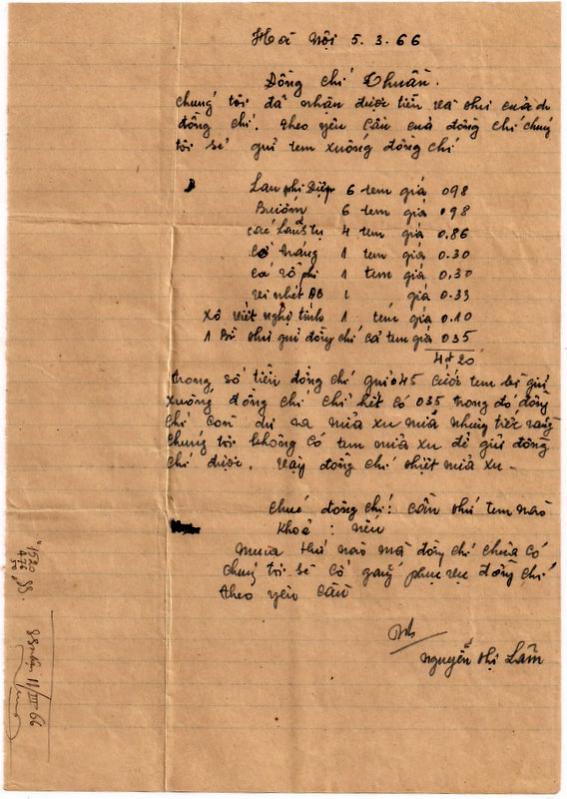 Hà Nội 5.3.66
Đồng chí Thuần.
chúng tôi đã nhận được tiền và thư của
đồng chí. theo yêu cầu của đồng chí chúng
tôi sẽ gửi tem xuống đồng chí
Lan phi Điệp 6 tem giá 098
Bướm 6 tem giá 098
4 tem giá 0.86
1 tem giá 0.30
cá rô phi 1 tem giá 0,30
1 giá 0.33
Xô viết nghệ tĩnh 1 tem giá 0.10
1 Bì thư gửi đồng chí cả tem giá 035
4đ20
trong số tiền đồng chí gửi 045 cước tem bì gửi
xuống đồng chí chi hết có 035 trong đó đồng
chí còn dư ra nửa xu mà nhưng tiếc rằng
chúng tôi không có tem nửa xu để gửi đồng
chí được. vậy đồng chí thiệt nửa xu -
chúc đồng chí: cần thứ tem nào
khoẻ: nếu
mua thứ nào mà đồng chí chưa có
chúng tôi sẽ cố gắng phục vụ đồng chí
theo yêu cầu
Nguyễn thị Lâm
11/III 66